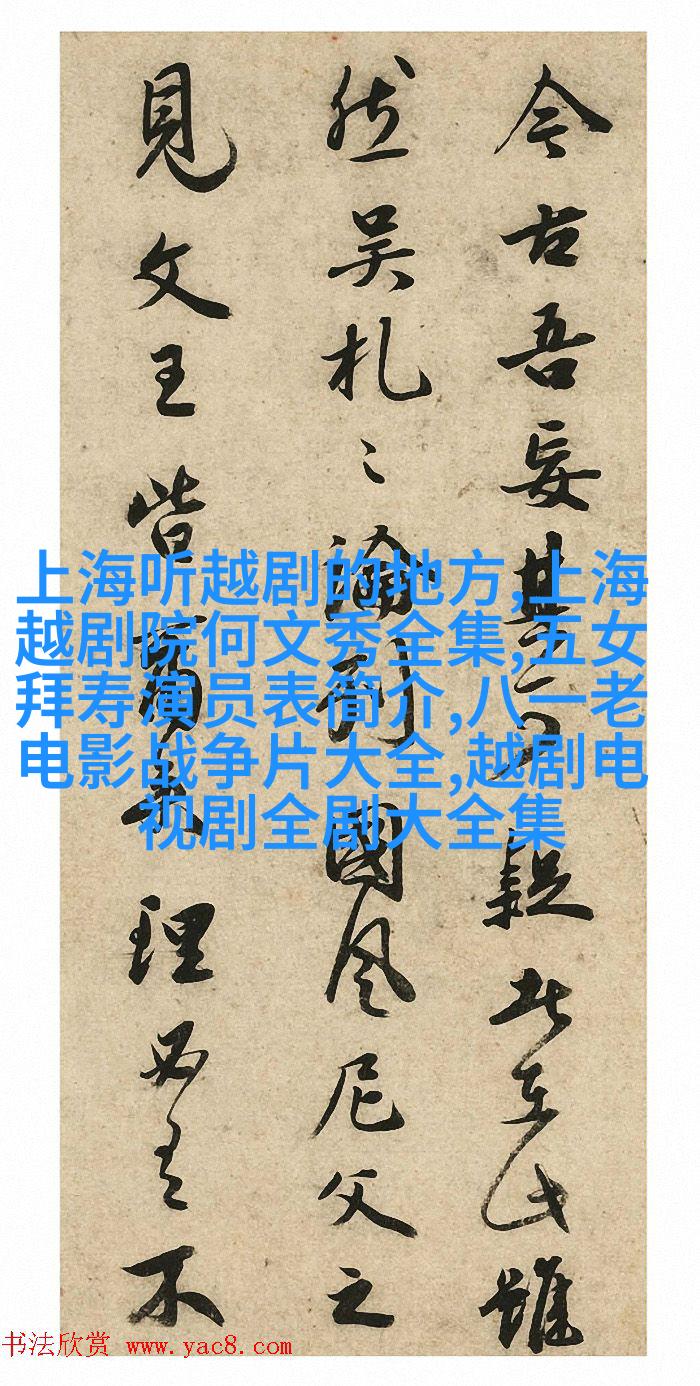 今古吾妄疑者在此雖
然吳札之論列國風尼父之
見文王皆理必有不
上海听越剧的地方,上海
越剧院何文秀全集,五女
拜寿演员表简介,八一老
电影战争片大全,越剧电
视剧全剧大全集
书法欣赏 www.yac8.com